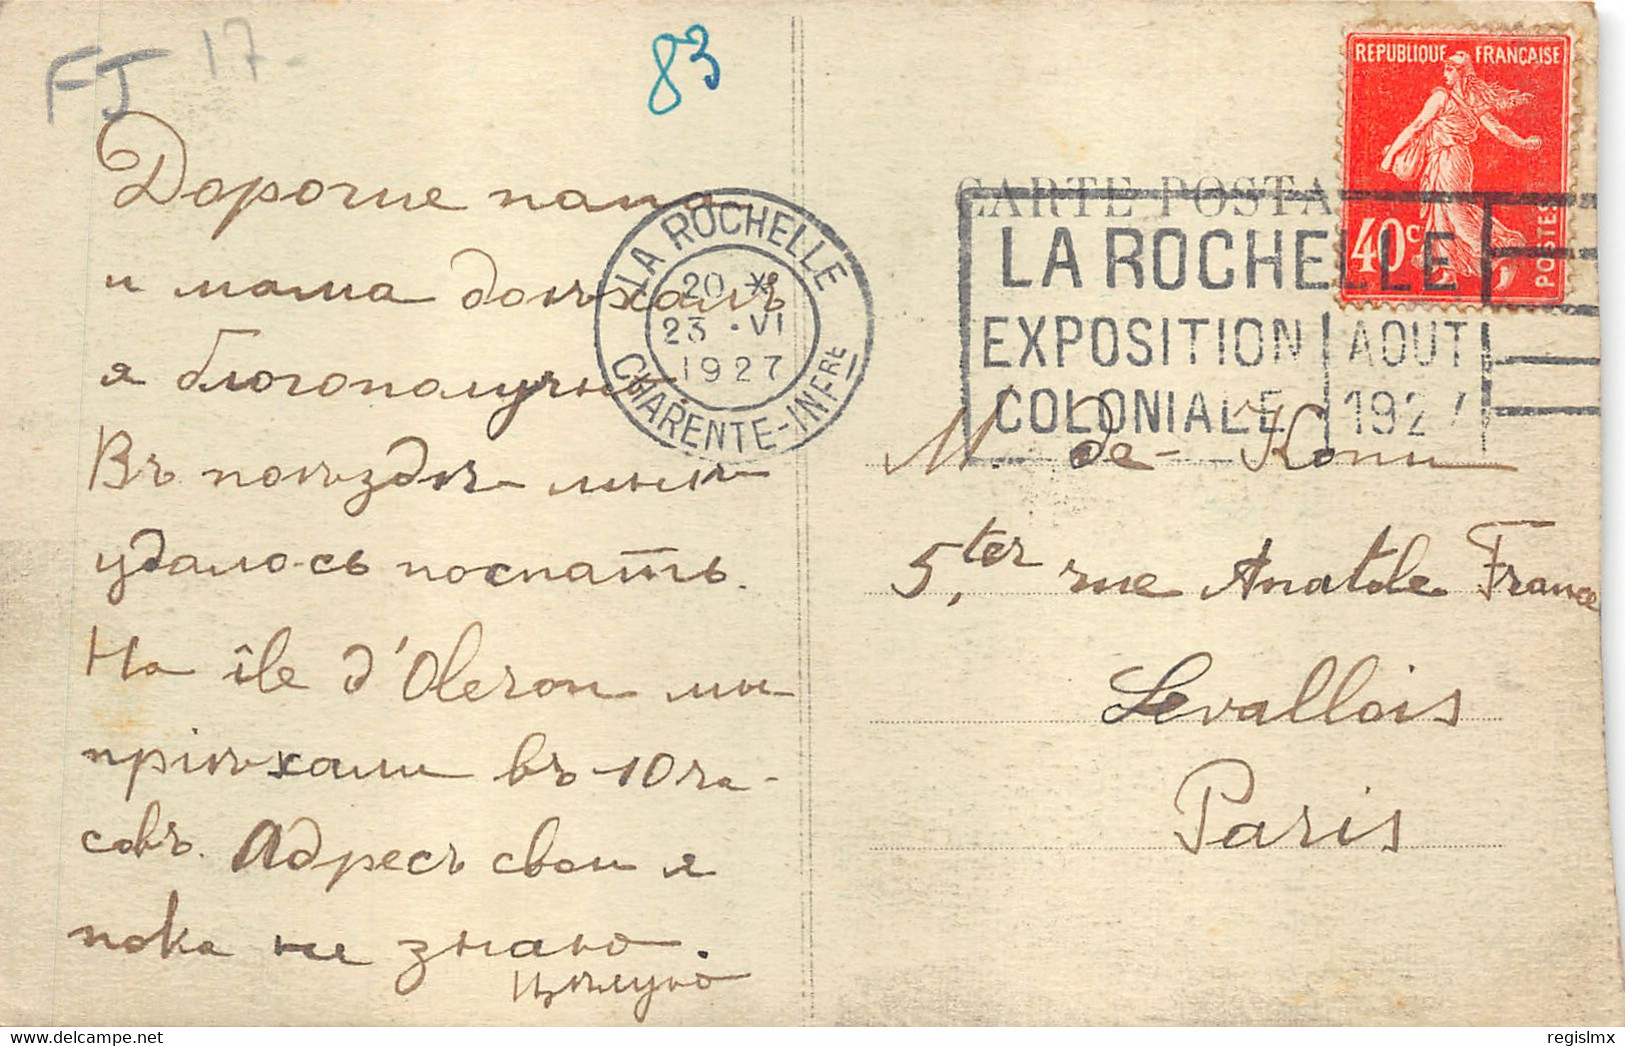 FJ 17
83
Дорогие папа
и мама доѣхалъ
я благополучно.
Въ поѣздѣ мнѣ
удалось поспать.
На île d'Oleron мы
приѣхали въ 10 ча-
совъ. Адресъ свой я
пока не знаю.
Цѣлую
LA ROCHELLE
20 *
23 · VI
1927
CHARENTE-INFRE
CARTE POSTA
REPUBLIQUE FRANÇAISE
40c
POSTES
LA ROCHELLE
EXPOSITION AOUT
COLONIALE 1927
M. de
5, ter rue Anatole France
Levallois
Paris
regislmx